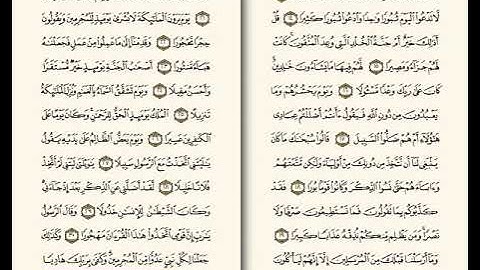 لَّا تَدْعُوا۟ ٱلْيَوْمَ ثُبُورًا وَٰحِدًا وَٱدْعُوا۟ ثُبُورًا كَثِيرًا ١٤ قُلْ
أَذَٰلِكَ خَيْرٌ أَمْ جَنَّةُ ٱلْخُلْدِ ٱلَّتِى وُعِدَ ٱلْمُتَّقُونَ كَانَتْ
لَهُمْ جَزَآءً وَمَصِيرًا ١٥ لَّهُمْ فِيهَا مَا يَشَآءُونَ خَٰلِدِينَ
كَانَ عَلَىٰ رَبِّكَ وَعْدًا مَّسْـُٔولًا ١٦ وَيَوْمَ يَحْشُرُهُمْ وَمَا
يَعْبُدُونَ مِن دُونِ ٱللَّهِ فَيَقُولُ ءَأَنتُمْ أَضْلَلْتُمْ عِبَادِى
هَٰٓؤُلَآءِ أَمْ هُمْ ضَلُّوا۟ ٱلسَّبِيلَ ١٧ قَالُوا۟ سُبْحَٰنَكَ مَا كَانَ
يَنۢبَغِى لَنَآ أَن نَّتَّخِذَ مِن دُونِكَ مِنْ أَوْلِيَآءَ وَلَٰكِن مَّتَّعْتَهُمْ
وَءَابَآءَهُمْ حَتَّىٰ نَسُوا۟ ٱلذِّكْرَ وَكَانُوا۟ قَوْمًۢا بُورًا ١٨ فَقَدْ
كَذَّبُوكُم بِمَا تَقُولُونَ فَمَا تَسْتَطِيعُونَ صَرْفًا وَلَا
نَصْرًا وَمَن يَظْلِم مِّنكُمْ نُذِقْهُ عَذَابًا كَبِيرًا ١٩
وَمَآ أَرْسَلْنَا قَبْلَكَ مِنَ ٱلْمُرْسَلِينَ إِلَّآ إِنَّهُمْ لَيَأْكُلُونَ
يَوْمَ يَرَوْنَ ٱلْمَلَٰٓئِكَةَ لَا بُشْرَىٰ يَوْمَئِذٍ لِّلْمُجْرِمِينَ وَيَقُولُونَ
حِجْرًا مَّحْجُورًا ٢٢ وَقَدِمْنَآ إِلَىٰ مَا عَمِلُوا۟ مِنْ عَمَلٍ فَجَعَلْنَٰهُ
هَبَآءً مَّنثُورًا ٢٣ أَصْحَٰبُ ٱلْجَنَّةِ يَوْمَئِذٍ خَيْرٌ مُّسْتَقَرًّا
وَأَحْسَنُ مَقِيلًا ٢٤ وَيَوْمَ تَشَقَّقُ ٱلسَّمَآءُ بِٱلْغَمَٰمِ وَنُزِّلَ ٱلْمَلَٰٓئِكَةُ
تَنزِيلًا ٢٥ ٱلْمُلْكُ يَوْمَئِذٍ ٱلْحَقُّ لِلرَّحْمَٰنِ وَكَانَ يَوْمًا عَلَى
ٱلْكَٰفِرِينَ عَسِيرًا ٢٦ وَيَوْمَ يَعَضُّ ٱلظَّالِمُ عَلَىٰ يَدَيْهِ يَقُولُ
يَٰلَيْتَنِى ٱتَّخَذْتُ مَعَ ٱلرَّسُولِ سَبِيلًا ٢٧ يَٰوَيْلَتَىٰ لَيْتَنِى لَمْ أَتَّخِذْ
فُلَانًا خَلِيلًا ٢٨ لَّقَدْ أَضَلَّنِى عَنِ ٱلذِّكْرِ بَعْدَ إِذْ جَآءَنِى
وَكَانَ ٱلشَّيْطَٰنُ لِلْإِنسَٰنِ خَذُولًا ٢٩ وَقَالَ ٱلرَّسُولُ
يَٰرَبِّ إِنَّ قَوْمِى ٱتَّخَذُوا۟ هَٰذَا ٱلْقُرْءَانَ مَهْجُورًا ٣٠ وَكَذَٰلِكَ
جَعَلْنَا لِكُلِّ نَبِىٍّ عَدُوًّا مِّنَ ٱلْمُجْرِمِينَ وَكَفَىٰ بِرَبِّكَ هَادِيًا